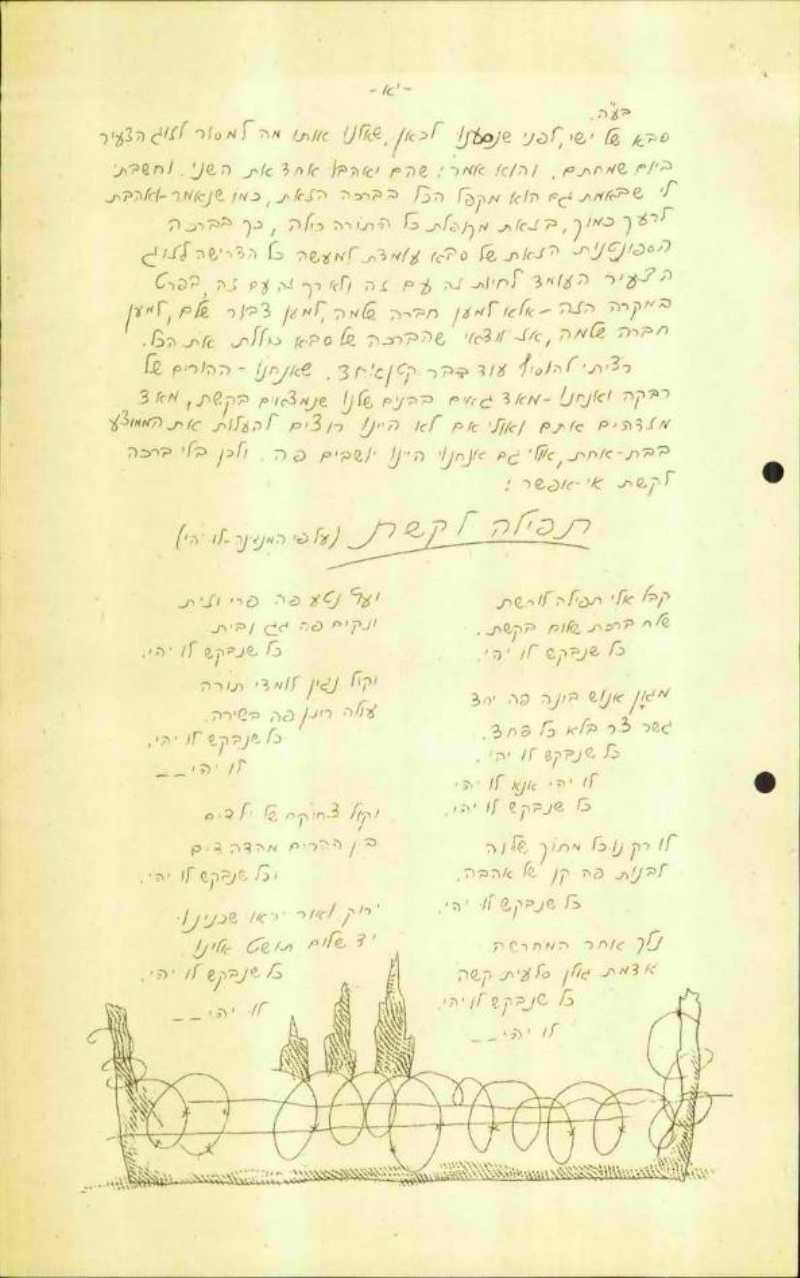 -יא-
בע"ה.
סבא של ישי, לפני שנסענו לכאן, שאלנו אותו מה למסור לזוג הצעיר
ביום שמחתם, והוא אמר: שהם יאהבו אחד את השני. וחשבתי
לי שבאמת גם הוא מקפל הכל בברכה הזאת, כמו שנאמר-ואהבת
לרעך כמוך, בזאת מקופלת כל התורה כולה, כך בברכה
הספונטנית הזאת של סבא עומדת למעשה כל הדרישה לזוג
הצעיר העומד לחיות זה עם זה ולא רק זה עם זה, בפרט
במקרה הזה - אלא למען חברה שלמה, למען צבור שלם, למען
חברה שלמה, אז ודאי שהברכה של סבא כוללת את הכל.
רציתי להוסיף עוד דבר קטן אחד. שאנחנו - ההורים של
רבקה ואנחנו - מאד גאים בבנים שלנו שנמצאים בקשת, מאד
מזדהים אתם ואולי אם לא היינו רוצים להעלות את הממוצע
בבת-אחת, אולי גם אנחנו היינו יושבים פה. ולכן בלי ברכה
לקשת אי-אפשר!
תפילה לקשת (על פי המנגינה-לו יהי)
קבל אלי תפילה לורשת
שלח ברכת שלום בקשת.
כל שנבקש לו יהי.
מגוון אנוש בונה פה יחד
גשר צר בלא כל פחד.
כל שנבקש לו יהי.
לו יהי אנא לו יהי
כל שנבקש לו יהי.
לו רק נוכל מתוך שלוה
לבנות פה קן של אהבה.
כל שנבקש לו יהי.
נלך אחר המחרשה
אדמת גולן סלעית קשה
כל שנבקש לו יהי.
לו יהי _ _
ועץ נטע פה פרי וזית
ונקים פה גג ובית
כל שנבקש לו יהי.
וקול נגין לומדי תורה
עולה רינן פה בשירה.
כל שנבקש לו יהי.
לו יהי _ _
וקול צחוקם של ילדים
בין ההרים מהדהדים
וכל שנבקש לו יהי.
ירוק ואור יראו שכנינו
יד שלום תושט אלינו
כל שנבקש לו יהי.
לו יהי _ _